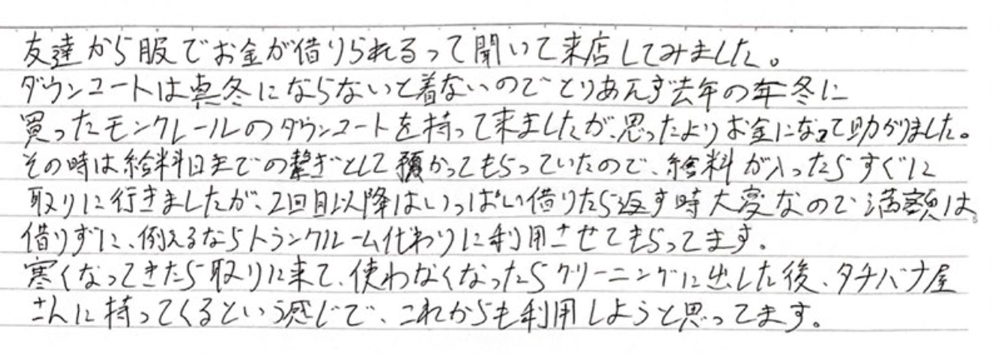 友達から服でお金が借りられるって聞いて来店してみました。
ダウンコートは真冬にならないと着ないのでとりあえず去年の年冬に
買ったモンクレールのダウンコートを持って来ましたが、思ったよりお金になって助かりました。
その時は給料日までの繋ぎとして預かってもらっていたので、給料が入ったらすぐに
取りに行きましたが、2回目以降はいっぱい借りたら返す時大変なので満額は
借りずに、例えるならトランクルーム代わりに利用させてもらってます。
寒くなってきたら取りに来て、使わなくなったらクリーニングに出した後、タチバナ屋
さんに持ってくるという感じで、これからも利用しようと思ってます。